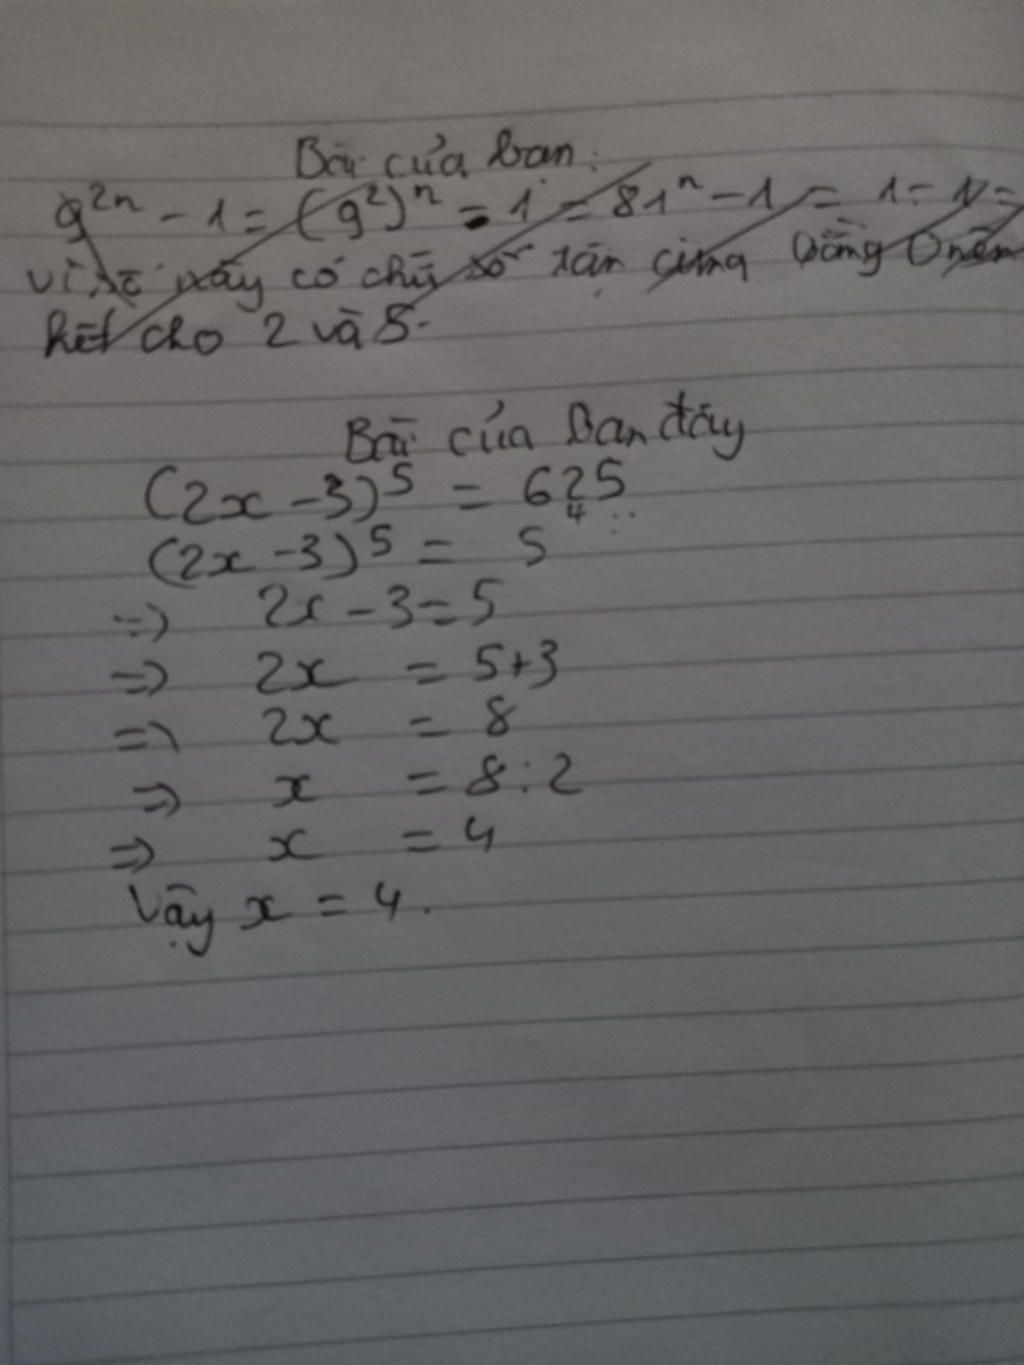 Bài của bạn:
9²ⁿ - 1 = (9²)ⁿ - 1 = 81ⁿ - 1 = 1 - 1 =
Vì số này có chữ số tận cùng bằng 0 nên
hết cho 2 và 5.
Bài của bạn đây
(2x - 3)⁵ = 625
(2x - 3)⁵ = 5⁴
=> 2x - 3 = 5
=> 2x = 5 + 3
=> 2x = 8
=> x = 8 : 2
=> x = 4
Vậy x = 4.